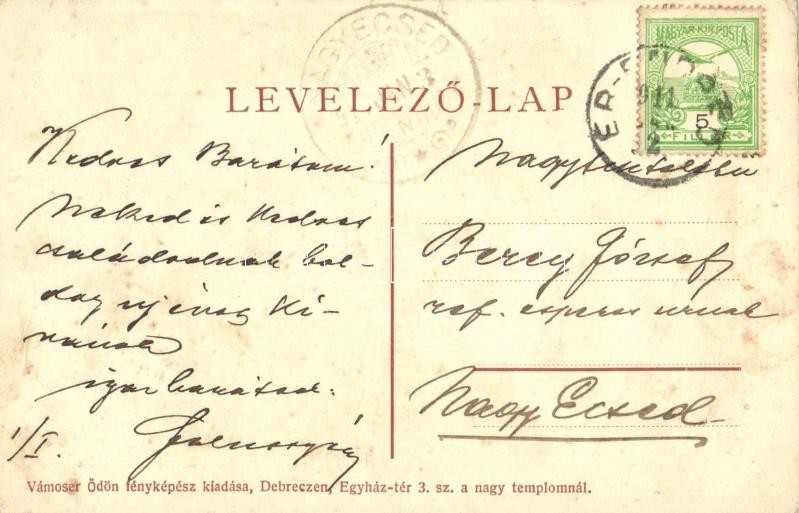 NAGYECSED
LEVELEZŐ-LAP
MAGYAR KIR. POSTA
5
FILLÉR
911
Kedves Barátom!
Neked is kedves
családodnak bol-
dog uj évet kí-
vánok
igaz barátod:
1/I.
Nagytiszteletű
Berey József
ref. esperes urnak
Nagy Ecsed
Vámoser Ödön fényképész kiadása, Debreczen, Egyház-tér 3. sz. a nagy templomnál.